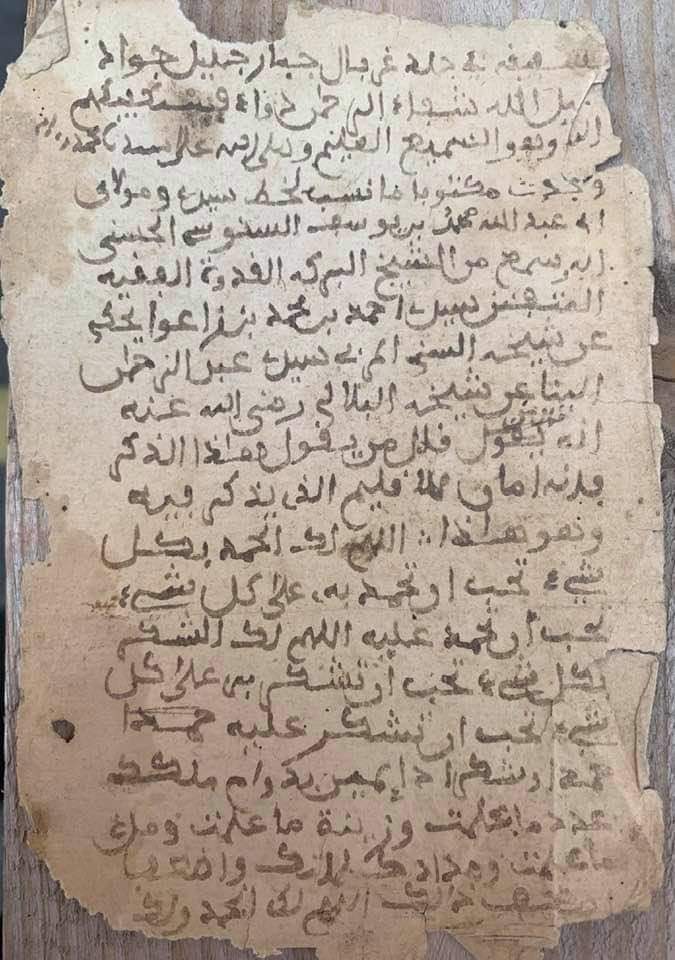 في جلد غربال جبار جليل جواد
الله شفاء الرحمن دواء فسيكفيكهم
الله وهو السميع العليم وصلى الله على سيدنا محمد
وجدت مكتوبا ما نسب لخط سيدي ومولاي
ابي عبد الله محمد بن يوسف السنوسي الحسني
انه سمع من الشيخ البركة القدوة الفقيه
المتفنن سيدي احمد بن محمد بن زاغوا يحكيه
عن شيخه السني سيدي عبد الرحمن
البنا عن شيخه البلالي رضي الله عنه
انه يقول قال من يقول هذا الذكر
فدته امان الذي يذكر فيه
وهو هذا اللهم لك الحمد بكل
شيء تحب ان تحمد به على كل شيء
تحب أن تحمد عليه اللهم لك الشكر
بكل شيء تحب ان تشكر به على كل
شيء تحب ان تشكر عليه حمدا
وشكرا دايمين بدوام ملكك
عدد ما علمت وزنة ما علمت وملء
ما علمت ومداد واضعاف
ذالك اللهم لك الحمد ولك